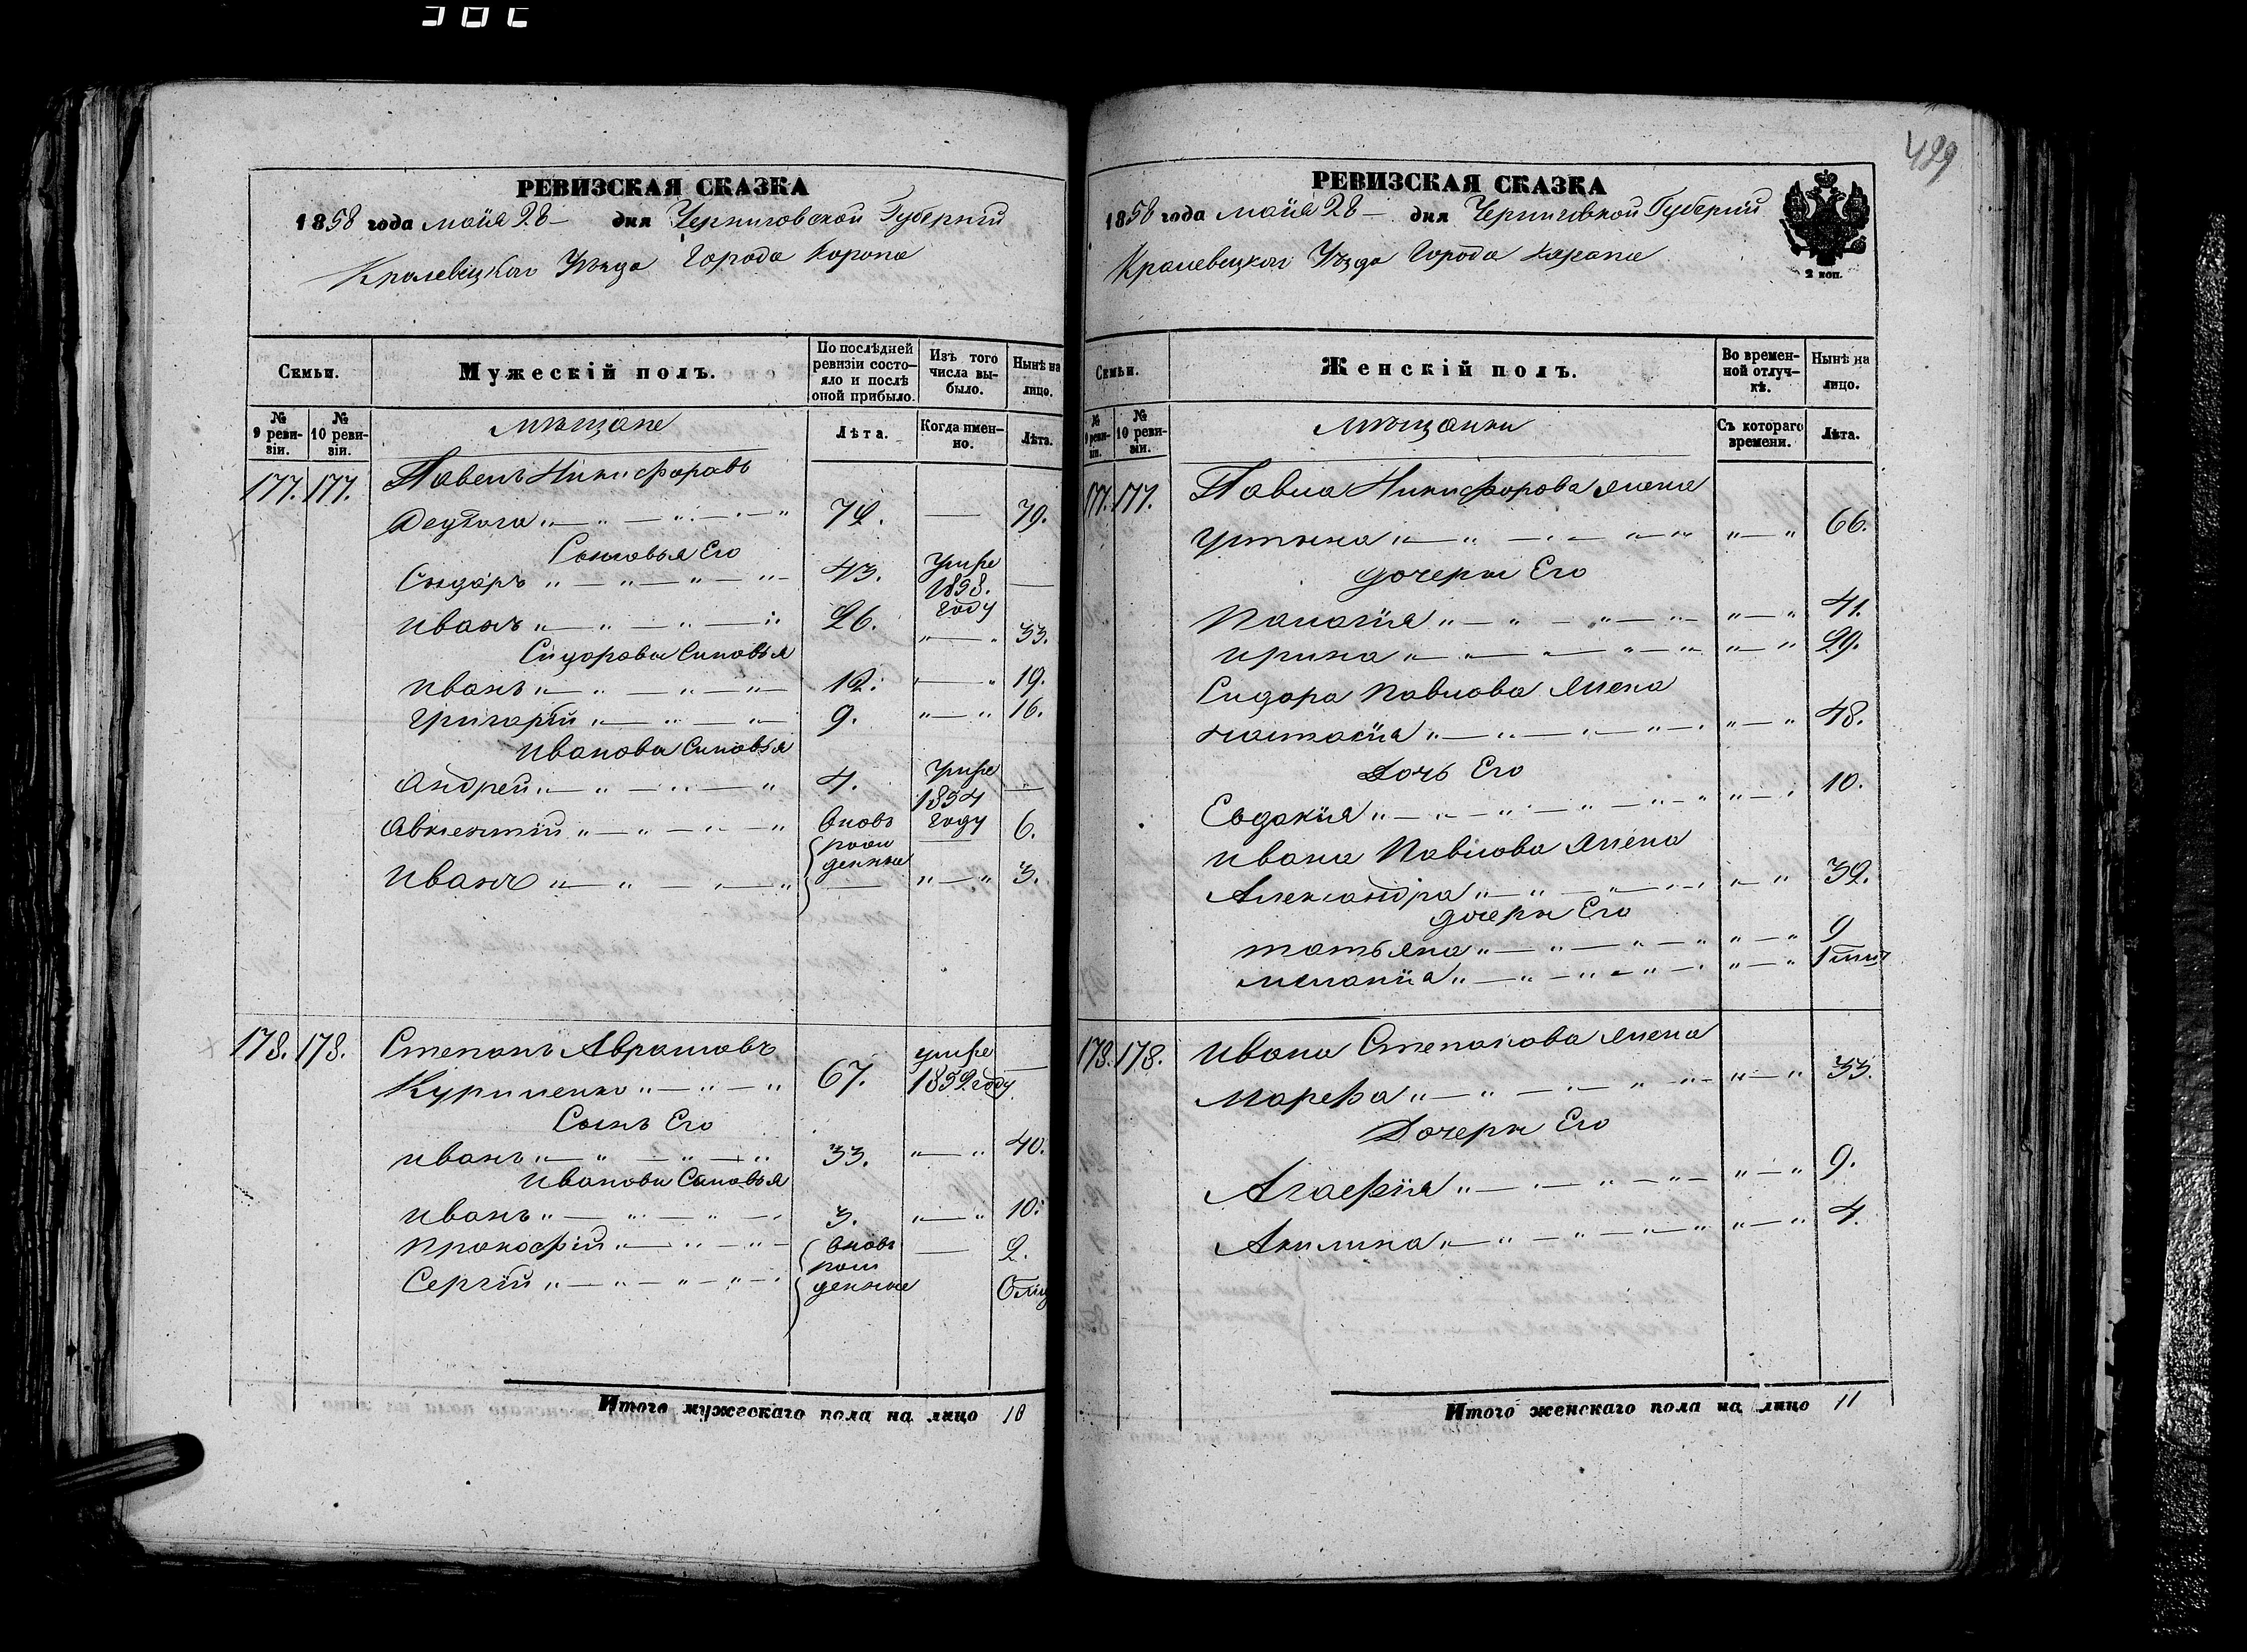 429
РЕВИЗСКАЯ СКАЗКА
1858 года майя 28 дня Черниговской Губернїи
Кролевецкого Уѣзда Города Коропа
Семьи.
Мужескій полъ.
По послѣдней ревизіи состояло и послѣ оной прибыло.
Изъ того числа выбыло.
Нынѣ на лицо.
№ 9 ревизіи.
№ 10 ревизіи.
мѣщане
Лѣта.
Когда именно.
Лѣта.
177. 177. Павелъ Никифоровъ
72. — 79.
Сыновья Его
Сидоръ 43. умре 1858. году —
Иванъ 26. 33.
Сидоровы Сыновья
Иванъ 12. 19.
Григорій 9. 16.
Ивановы Сыновья
Андрей 4. умре 1854 году —
Авксентій вновь рожденные 6.
Иванъ 3.
178. 178. Степанъ Аврамовъ
Куриленко 67. умре 1852 году —
Сынъ Его
Иванъ 33. 40.
Ивановы Сыновья
Иванъ 3. 10.
Прокофій вновь рожденные 2.
Сергій 6 мѣ
Итого мужескаго пола на лицо 10
РЕВИЗСКАЯ СКАЗКА
1858 года майя 28 дня Черниговской Губернїи
Кролевецкого Уѣзда Города Коропа
2 коп.
Семьи.
Женскій полъ.
Во временной отлучкѣ.
Нынѣ на лицо.
№ 9 ревизіи.
№ 10 ревизіи.
мѣщанки
Съ котораго времени.
Лѣта.
177. 177. Павла Никифорова жена
Устина 66.
дочери Его
Палагія 41.
Ирина 29.
Сидора Павлова жена
Настасія 48.
Дочь Его
Евдокія 10.
Ивана Павлова жена
Александра 32.
дочери Его
Татьяна 9
Меланія 1
178. 178. Ивана Степанова жена
Марефа 33.
Дочери Его
Агаефія 9.
Акилина 4.
Итого женскаго пола на лицо 11